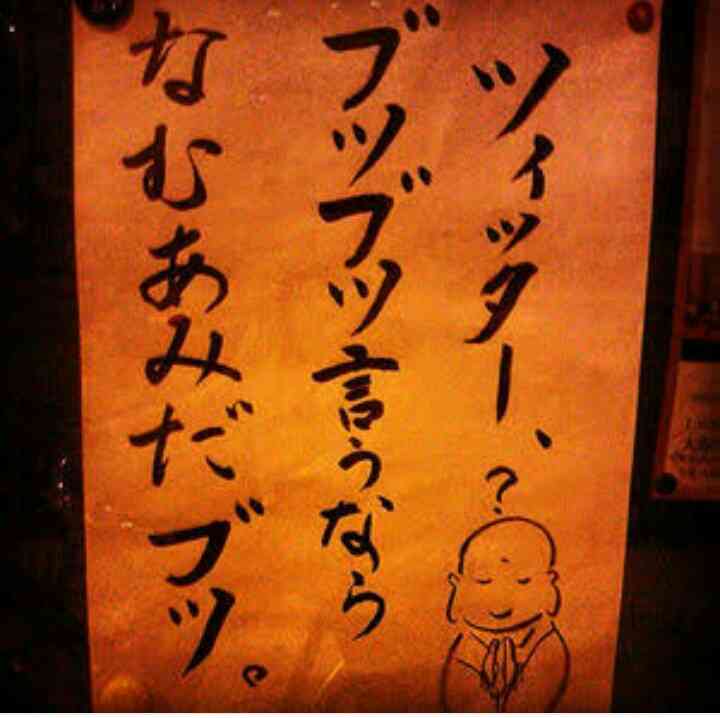 ツイッター、
?
ブツブツ言うなら
なむあみだブツ。